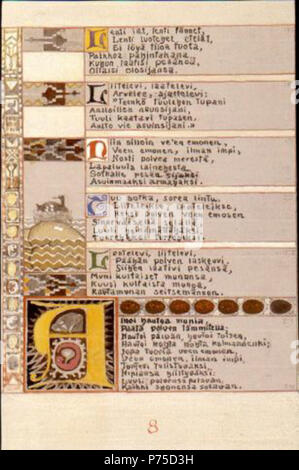 Lenti iät, lenti lännet,
Lenti luotehet, etelät,
Ei löyä tiloa tuota,
Paikkoa pahintakana,
Kuhun laatisi pesänsä,
Ottaisi olosijansa.
Liitelevi, laatelevi,
Arvelee, ajattelevi:
"Teenkö tuulehen tupani
Aalloillen asuinsijani,
Tuuli kaatavi tupasen,
Aalto vie asuinsijani."
Niin silloin ve'en emonen,
Veen emonen, ilman impi,
Nosti polvea merestä,
Lapaluuta lainehesta
Sotkalle pesän sijaksi
Asuinmaaksi armahaksi.
Tuo sotka, sorea lintu,
Liiteleikse,
Keksi polven veen emosen
Sinerväisellä selällä
Luuli heinämättähäksi,
Tuoreheksi turpeheksi.
Lentelevi, liitelevi,
Päähän polven laskeuvi.
Siihen laativi pesänsä,
Muni kultaiset munansa,
Kuusi kultaista munoa,
Rautamunan seitsemännen.
Alkoi hautoa munia,
Päätä polven lämmitteä.
Hautoi päivän, hautoi toisen,
Hautoi kohta kolmannenki.
Jopa tuosta veen emonen,
Veen emonen, ilman impi,
Tuntevi tulistuvaksi,
Hipiänsä hiiltyväksi;
Luuli polvensa palavan,
Kaikki suonensa sulavan.
8
alamy stock photo
alamy
Image ID: P75D3H
www.alamy.com